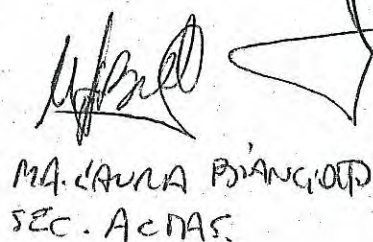 MA. LAURA BIANCIOTTO
SEC. ACTAS.